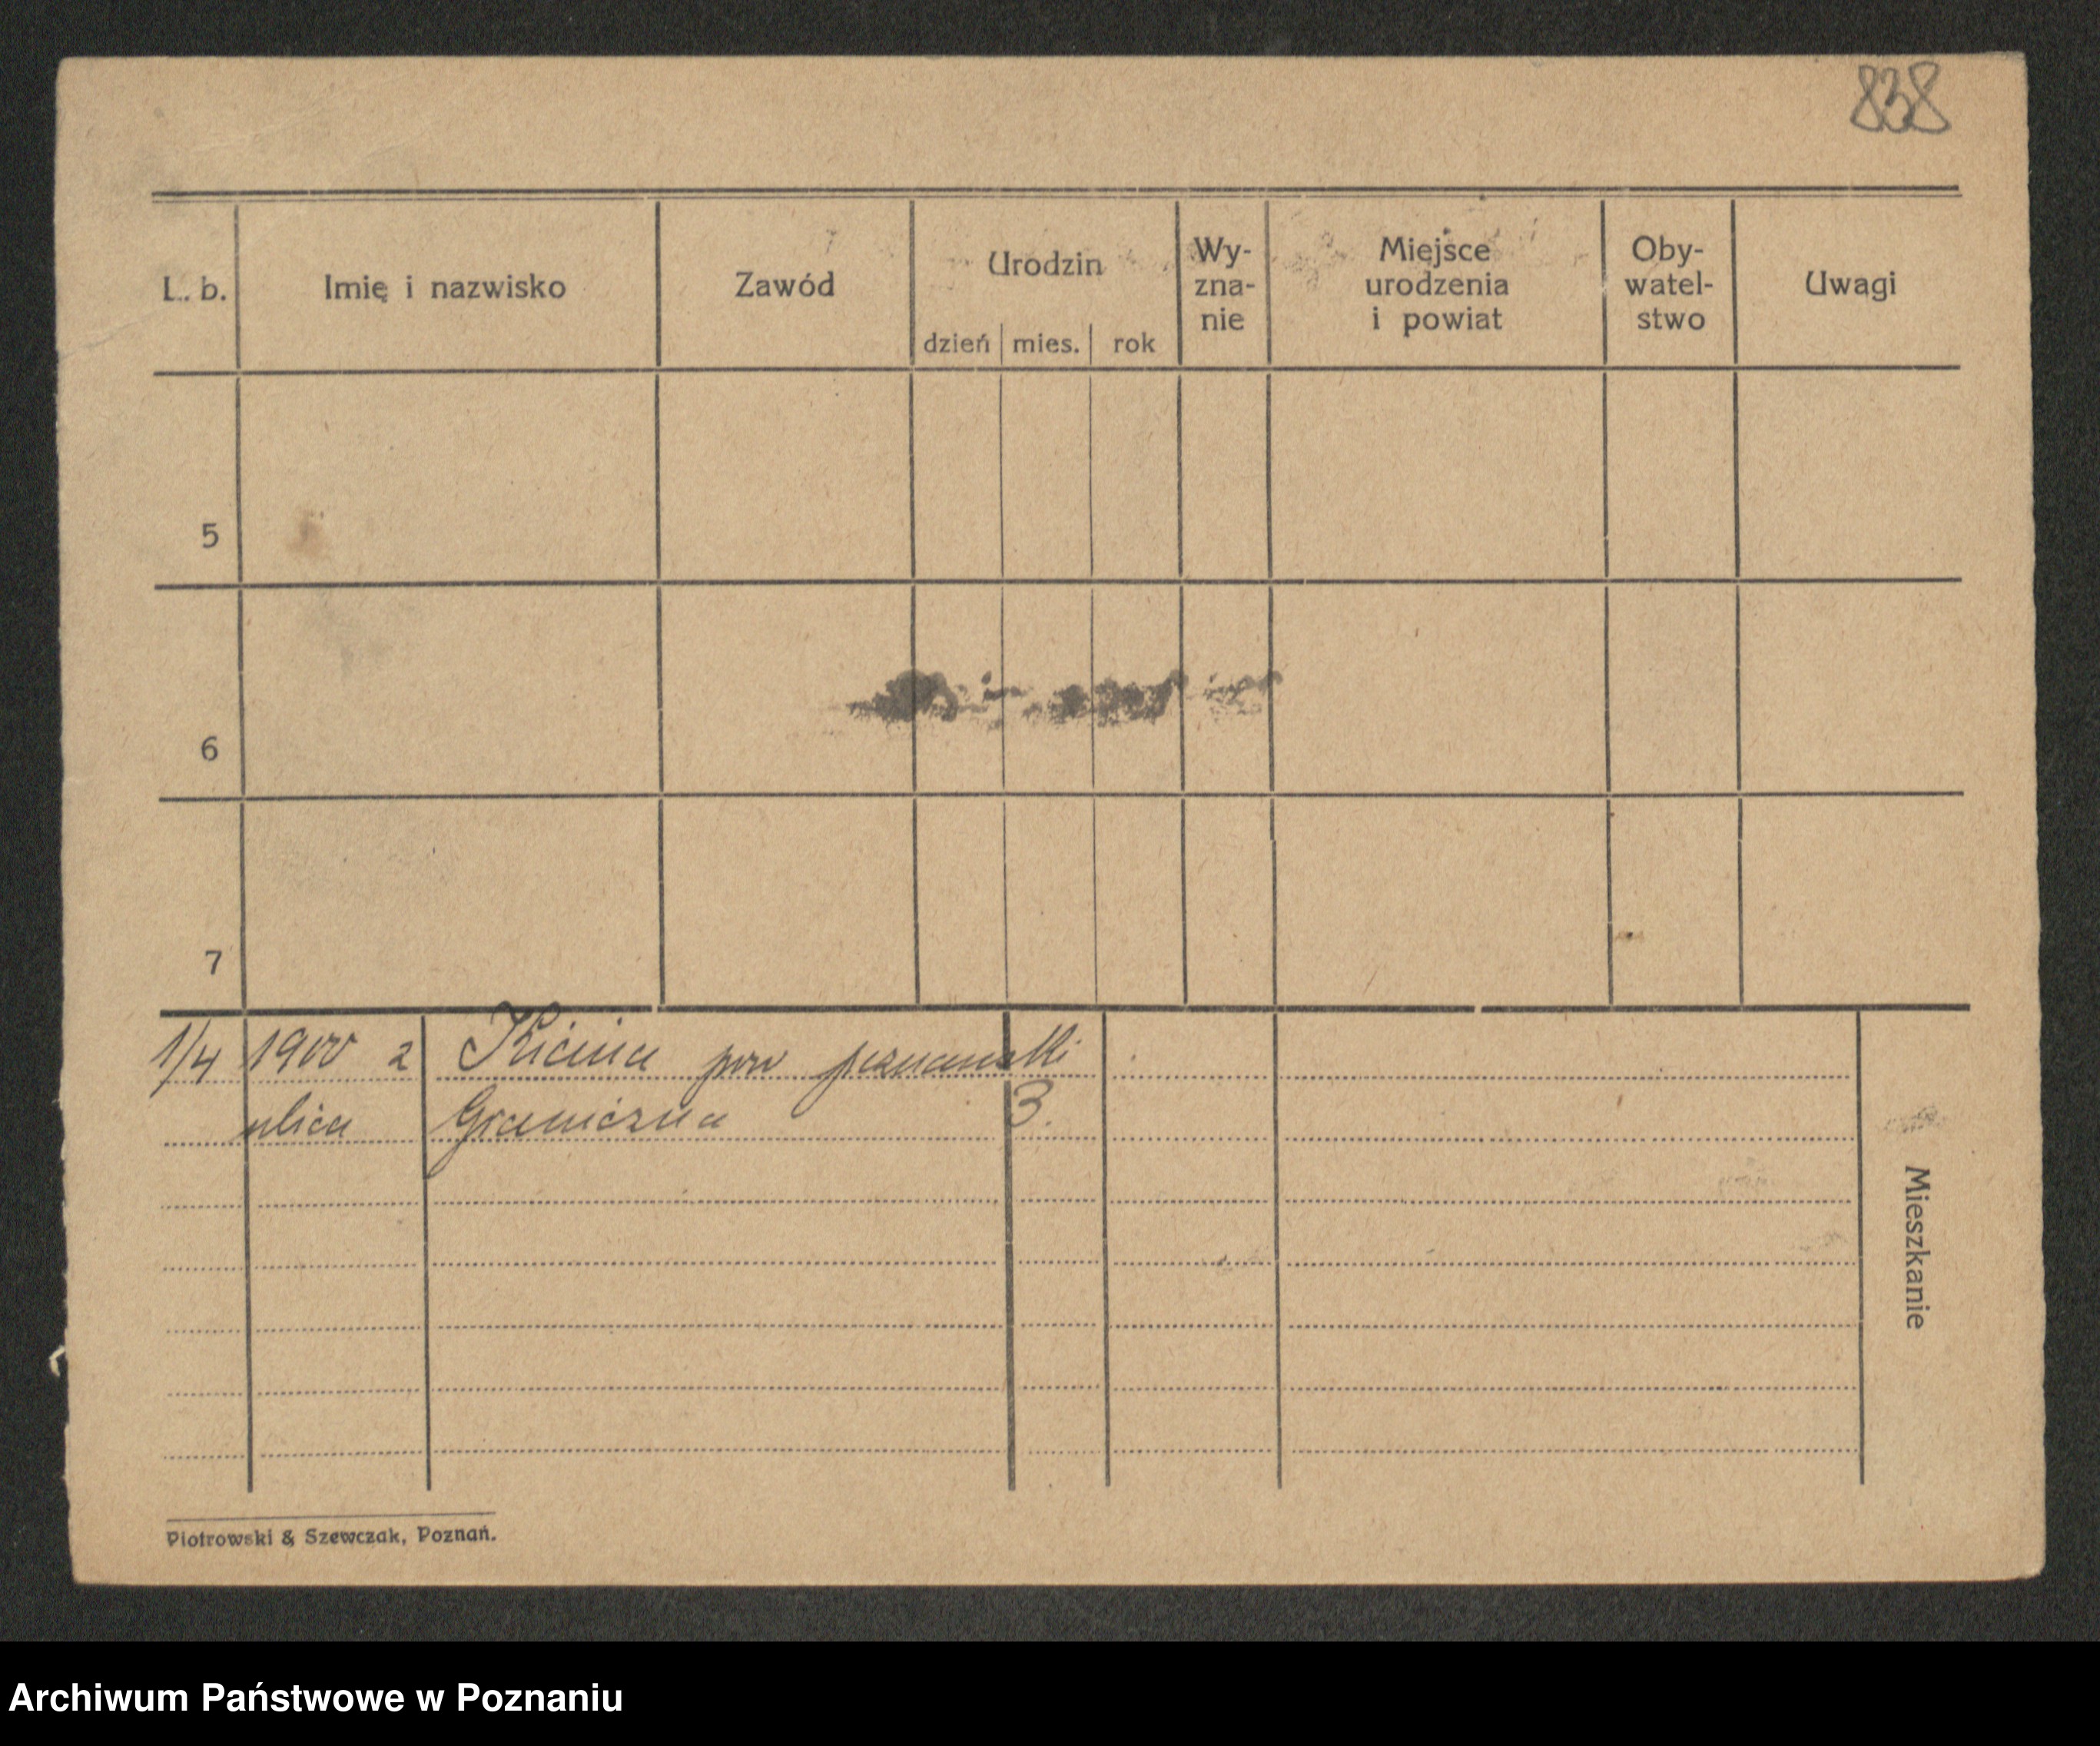 838
L. b. Imię i nazwisko Zawód Urodzin dzień mies. rok Wy-
zna-
nie Miejsce
urodzenia
i powiat Oby-
watel-
stwo Uwagi
5
6
7
1/4 1900 z Kicina pow poznański
ulica Graniczna 3.
Mieszkanie
Piotrowski & Szewczak, Poznań.
Archiwum Państwowe w Poznaniu